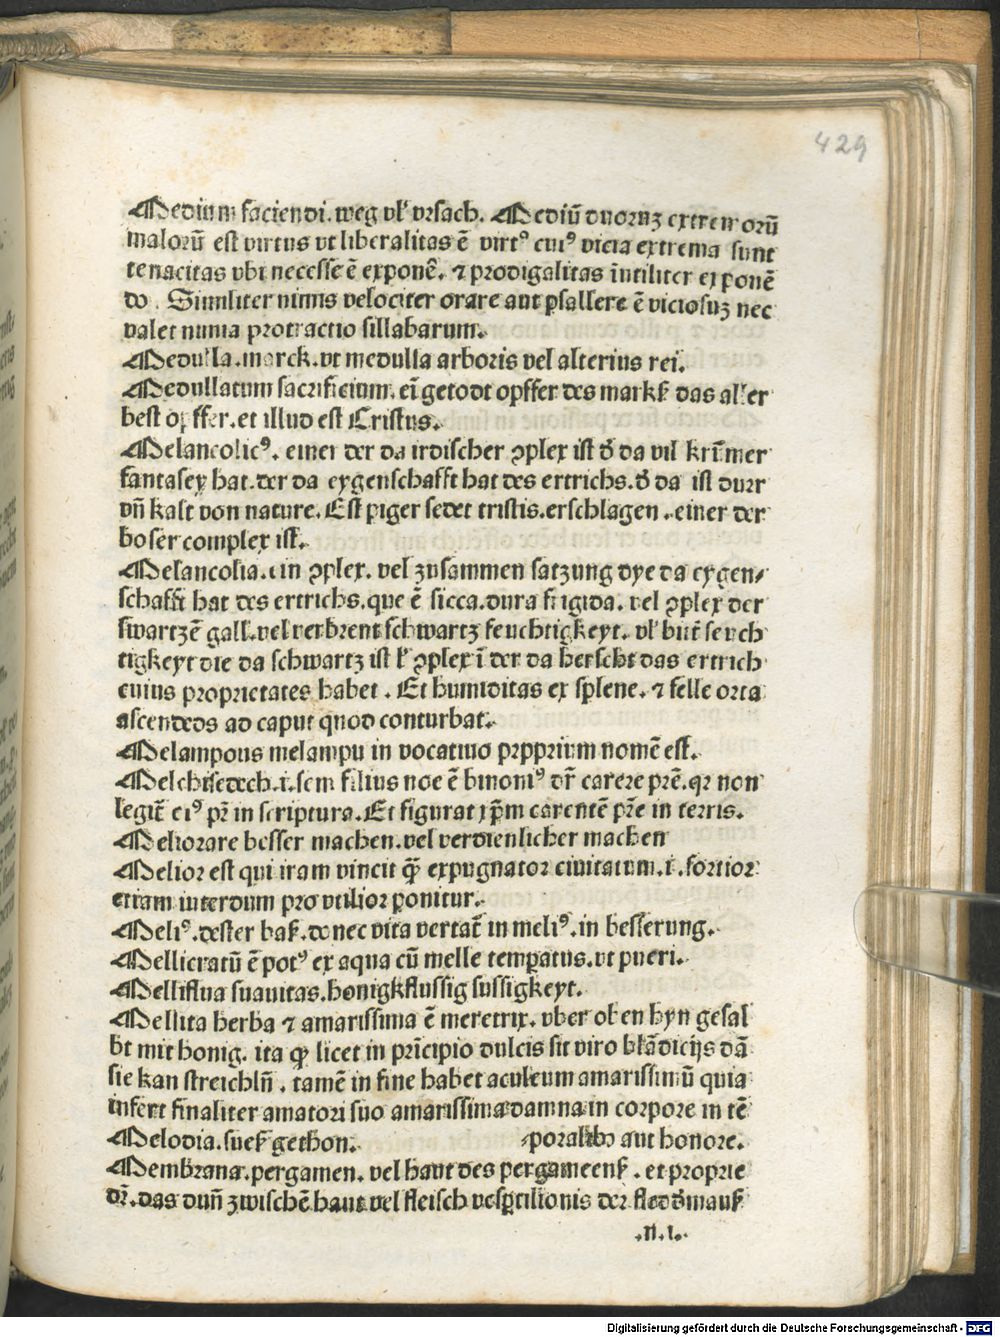 429
Medium faciendi. weg vľ vrsach. Mediū duoruꝫ extremorū
malorū est virtus vt liberalitas ē virtꝰ cuiꝰ vicia extrema sunt
tenacitas vbi necesse ē exponē. ⁊ prodigalitas inutiliter exponē
do. Similiter nimis velociter orare aut psallere ē viciosuꝫ nec
valet nimia protractio sillabarum.
Medulla. marck. vt medulla arboris vel alterius rei.
Medullatum sacrificium. eī getodt opffer des markſ das aller
best opffer. et illud est Cristus.
Melancolicꝰ. einer der da irdischer ꝯplex ist đ da vil krūmer
fantasey hat. der da eygenschafft hat des ertrichs. đ da ist durr
vn̄ kalt von nature. Est piger sedet tristis. erschlagen. einer der
boser complex ist.
Melancolia. ein ꝯplex. vel zusammen satzung dye da eygen⸗
schafft hat des ertrichs. que ē sicca. dura frigida. vel ꝯplex der
swartzē gall. vel verbrent schwartz feuchtigkeyt.
tigkeyt die da schwartz ist ꝯplex ī der da herscht das ertrich
cuius proprietates habet. Et humiditas ex splene. ⁊ felle orta
ascendēdo ad caput quod conturbat.
Melampous melampu in vocatiuo prpprium nomē est.
Melchisedech. i. sem filius noe ē binoniꝰ dr̄ carere prē. qr non
legit̄ eiꝰ pr̄ in scriptura. Et figurat xp̄m carentē pr̄e in terris.
Meliorare besser machen. vel verdienlicher machen
Melior est qui iram vincit q̄ expugnator ciuitatum. i. fortior
etiam interdum pro vtilior ponitur.
Meliꝰ. dester baſ. donec vita vertat̄ in meliꝰ. in besserung.
Mellicratū ē potꝰ ex aqua cū melle temꝑatus. vt pueri.
Melliflua suauitas. honigkflussig sussigkeyt.
Mellita herba ⁊ amarissima ē meretrix. vber oben hyn gesal
bt mit honig. ita ꝙ licet in prīcipio dulcis sit viro blādicijs dā
sie kan streichln̄. tamē in fine habet aculeum amarissimū quia
infert finaliter amatori suo amarissima damna in corpore in tē
Melodia. sueſ gethon. ⸗poralibꝰ aut honore.
Membrana. pergamen. vel haut des pergameenſ. et proprie
dr̄. das dun̄ zwischē haut vel fleisch vesꝑtilionis der fledđmauſ
.n.i.
Digitalisierung gefördert durch die Deutsche Forschungsgemeinschaft - DFG